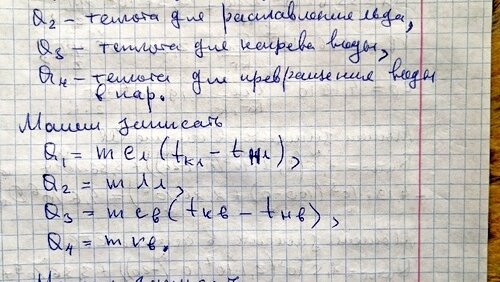 Q₂ – теплота для расплавления льда,
Q₃ – теплота для нагрева воды,
Q₄ – теплота для превращения воды
в пар.
Можем записать
Q₁ = m cл (tкл – tнл),
Q₂ = m λл,
Q₃ = m cв (tкв – tнв),
Q₄ = m rв.